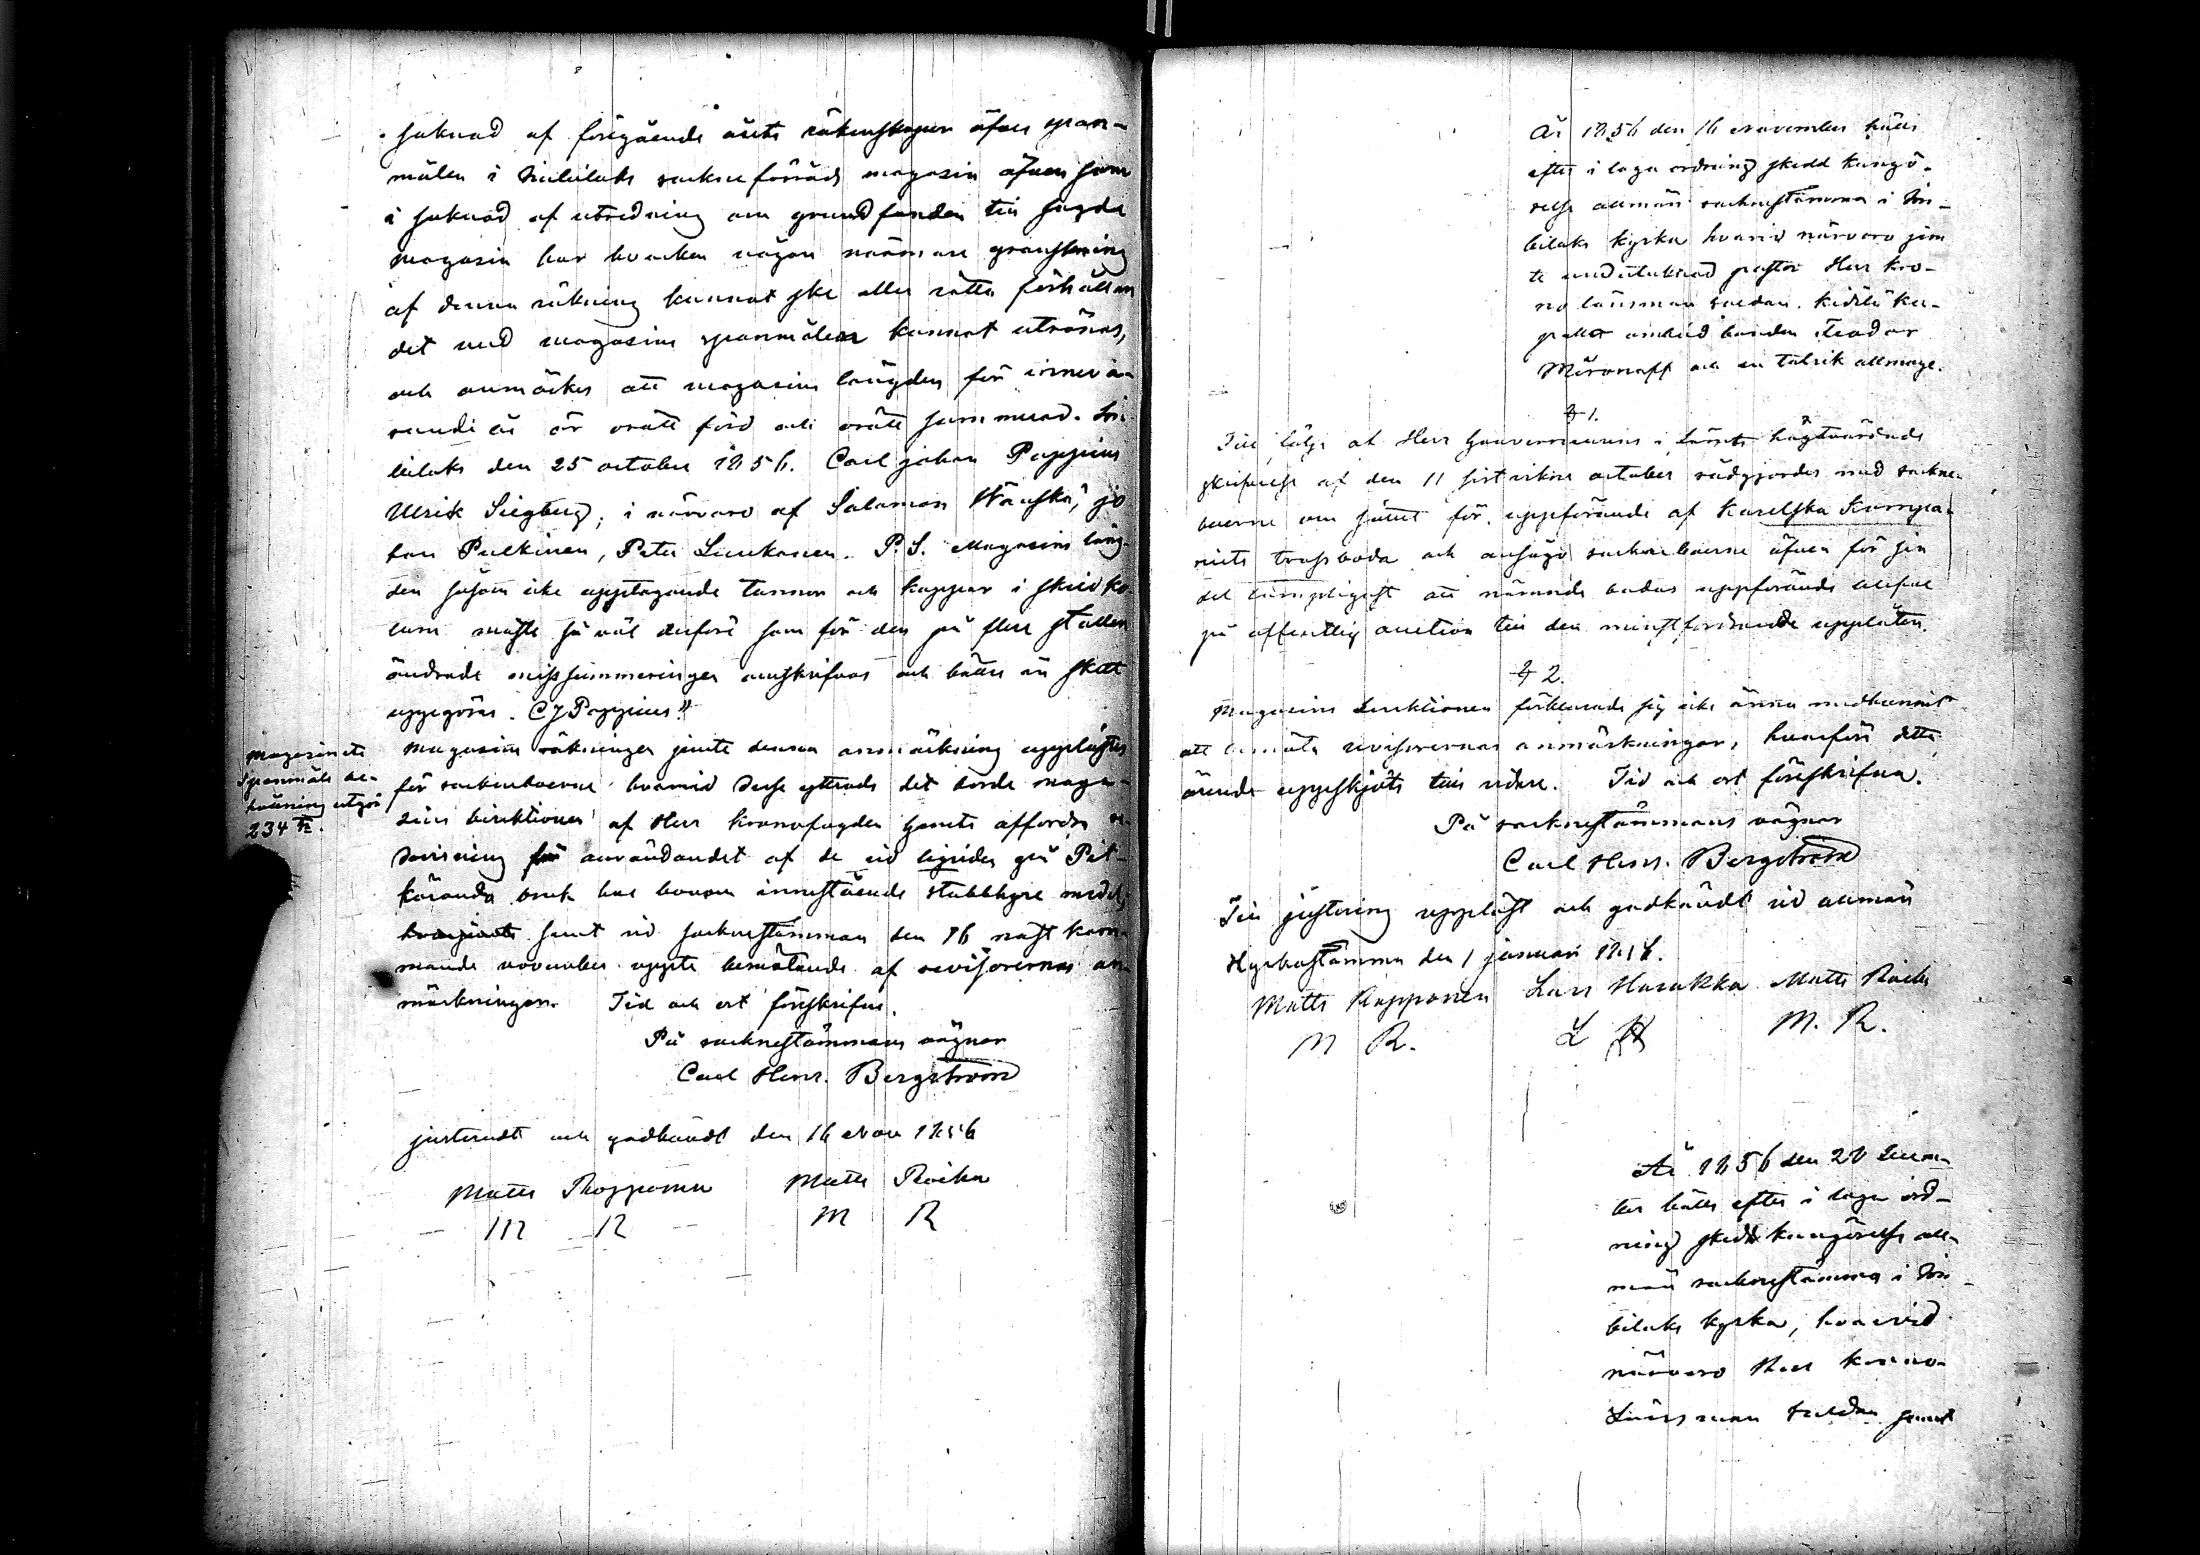 saknad af föregående årets räkenskaper öfver span-
målen i sockne förråds magasin äfven som
i saknad af utredning om grundfonden till sagde
magasin har hvarken någon närmare granskning
af denna räkning kunnat ske eller rätta förhållan
det med magasins spanmålen kunnat utrönas,
och anmärkes att magasins längden för inneva-
rande år är orätt förd och orätt summerad. Im-
bilaks den 25 october 1856. Carl Johan Poppius
Ulrik Siegberg, i närvaro af Salamon Wänskä, Jo
han Pulkinen, Peter Liukonen. P.S. Magasins läng-
den såsom icke upptagande tunnor och kappar i skild ko-
lumn måste så väl derföre som för den på flere ställen
ändrade missummeringen omskrifvas och bättre än skett
uppgöras. CJ Poppius"
Magasinets
Spanmåls be-
hållning utgör
234
Magasins räkningen jemte denna anmärkning upplästes
för socknboerne hvarvid desse yttrade det borde maga-
sins direktionen af Herr Kronofogden Ganets affordra re-
dovisning för användandet af de vid ligiden på Pit-
käranda bruk hos honom innestående stubbhyre medel,
samt vid socknestämman den 16 näst kom-
mande november uppte bemötande af revisorernas an-
märkningar. Tid och ort förskrifne.
På socknestämmans vägnar
Carl Henr. Bergström
justeradt och godkändt den 16 Nov 1856
Matts Ropponen Matts Roika
M R M R
År 1856 den 16 November hölls
efter i laga ordning skedd kungö-
relse allmän socknestämma i Im-
bilaks kyrka hvarvid närvoro jem
te undertecknad pastor Herr Kro-
no länsman Suldan. Kidelä ka-
pells ombud bonden Feodor
Mironoff och en talrik allmoge.
§ 1.
Till följe af Herr Gouverneurens i länets högtvördade
skrifvelse af den 11 sistvikne october rådgjordes med sockne
boerne om sättet för uppförande af Karelska Kompa-
niets trossboda och ansågo socknboerne äfven för sin
del lämpligast att nämnde bodas uppförande blefve
på offentlig auction till den minstfordrande upplåten.
§ 2.
Magasins direktionen förklarade sig icke ännu medhunnit
att bemöta revisorernas anmärkningar, hvarföre detta
ärende uppskjöts tills vidare. Tid och ort förskrifne.
På socknestämmans vägnar
Carl Henr. Bergström
Till justering uppläst och godkändt vid allmän
Kyrkostämma den 1 januari
Matts Ropponen Lars Harakka Matts Roika
M R. L H M. R.
År 1856 den 28 decem
ber hölls efter i laga ord-
ning skedd kungörelse all-
män socknestämma i Im-
bilaks kyrka, hvarvid
närvoro Herr Krono-
Länsman Suldan samt